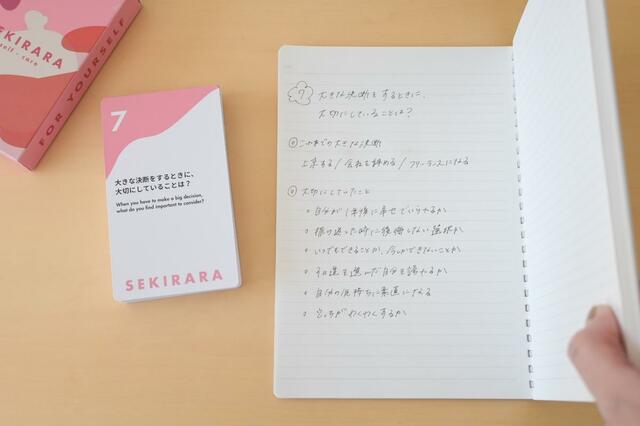 SEKIRARA
self-care
FOR YOURSELF
7
大きな決断をするときに、
大切にしていることは？
When you have to make a big decision,
what do you find important to consider?
SEKIRARA
7 大きな決断をするときに、
大切にしていることは？
これまでの大きな決断
上京する / 会社を辞める / フリーランスになる
大切にしていたこと
自分が1年後に幸せでいられるか
振り返った時に後悔しない選択か
いつでもできることか、今しかできないことか
その道を選んだ自分を誇れるか
自分の気持ちに素直になる
心がわくわくするか